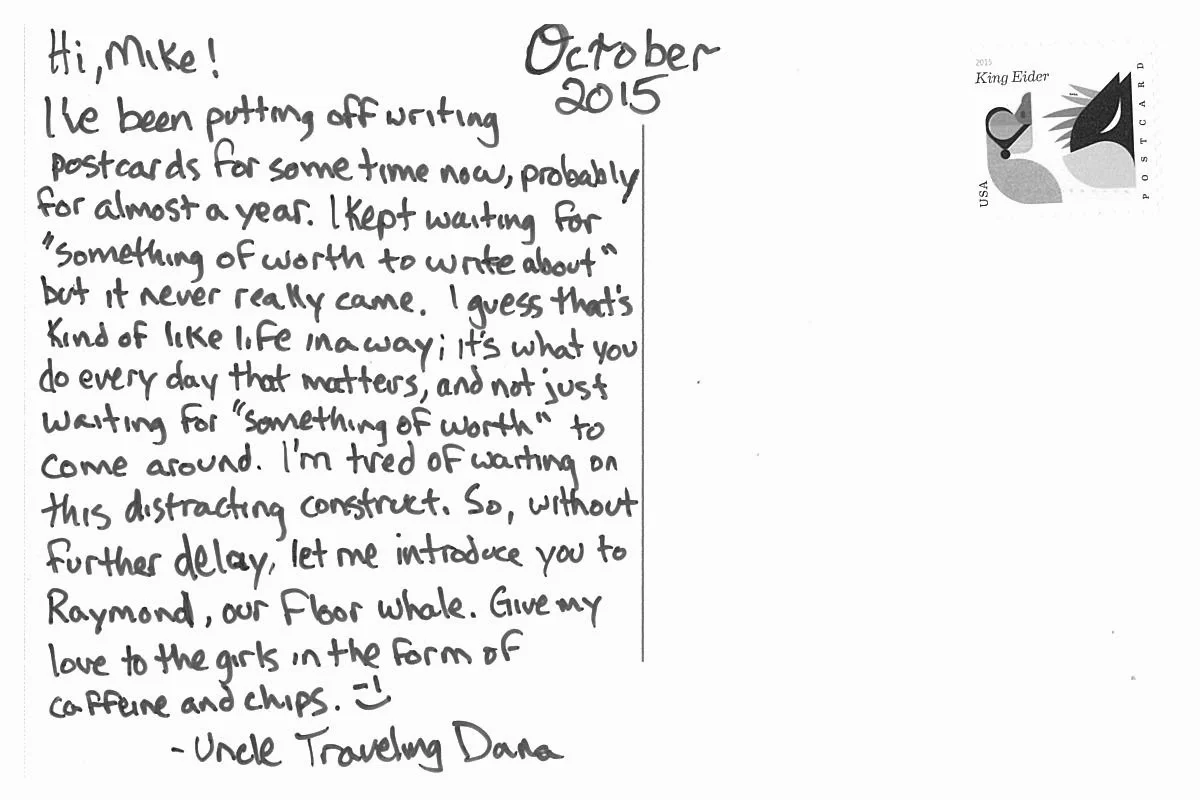 Hi, Mike!
October
2015
I've been putting off writing
postcards for some time now, probably
for almost a year. I kept waiting for
"something of worth to write about"
but it never really came. I guess that's
kind of like life in a way; it's what you
do every day that matters, and not just
waiting for "something of worth" to
come around. I'm tired of waiting on
this distracting construct. So, without
further delay, let me introduce you to
Raymond, our floor whale. Give my
love to the girls in the form of
caffeine and chips.
- Uncle Traveling Dana
2015
King Eider
USA
POSTCARD